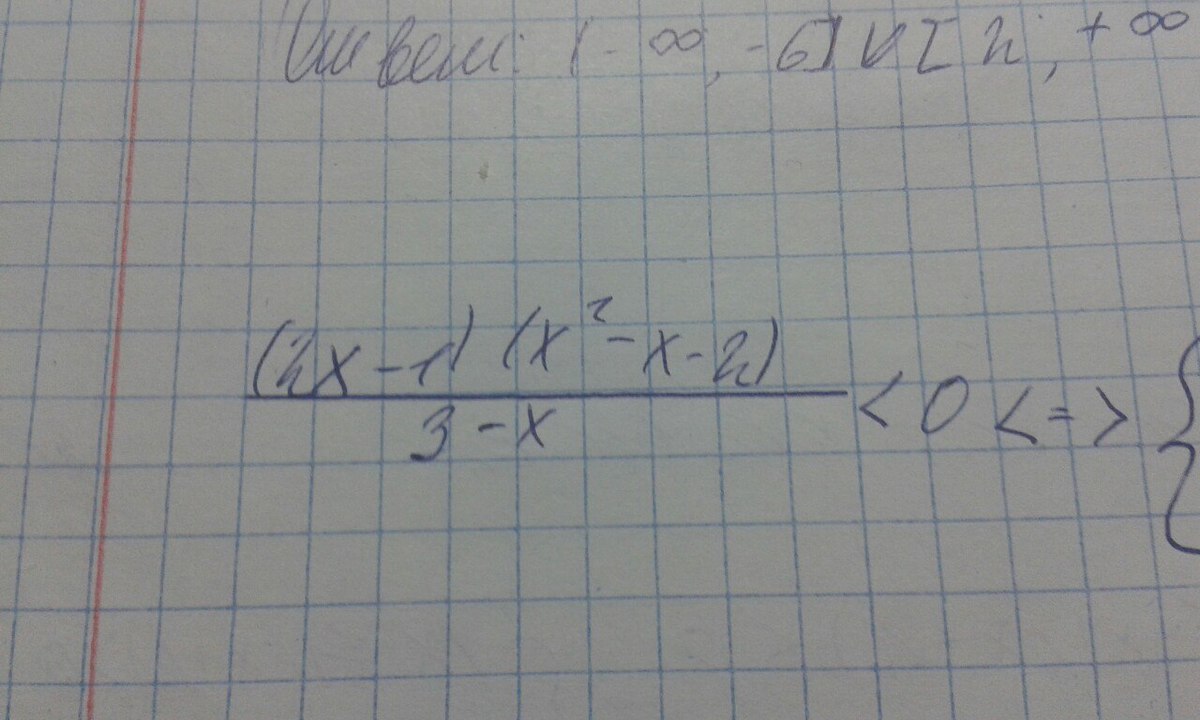 Ответ: (-∞, -6] ∪ [2; +∞
(2x-1)(x²-x-2)
3-x
< 0 <=> {